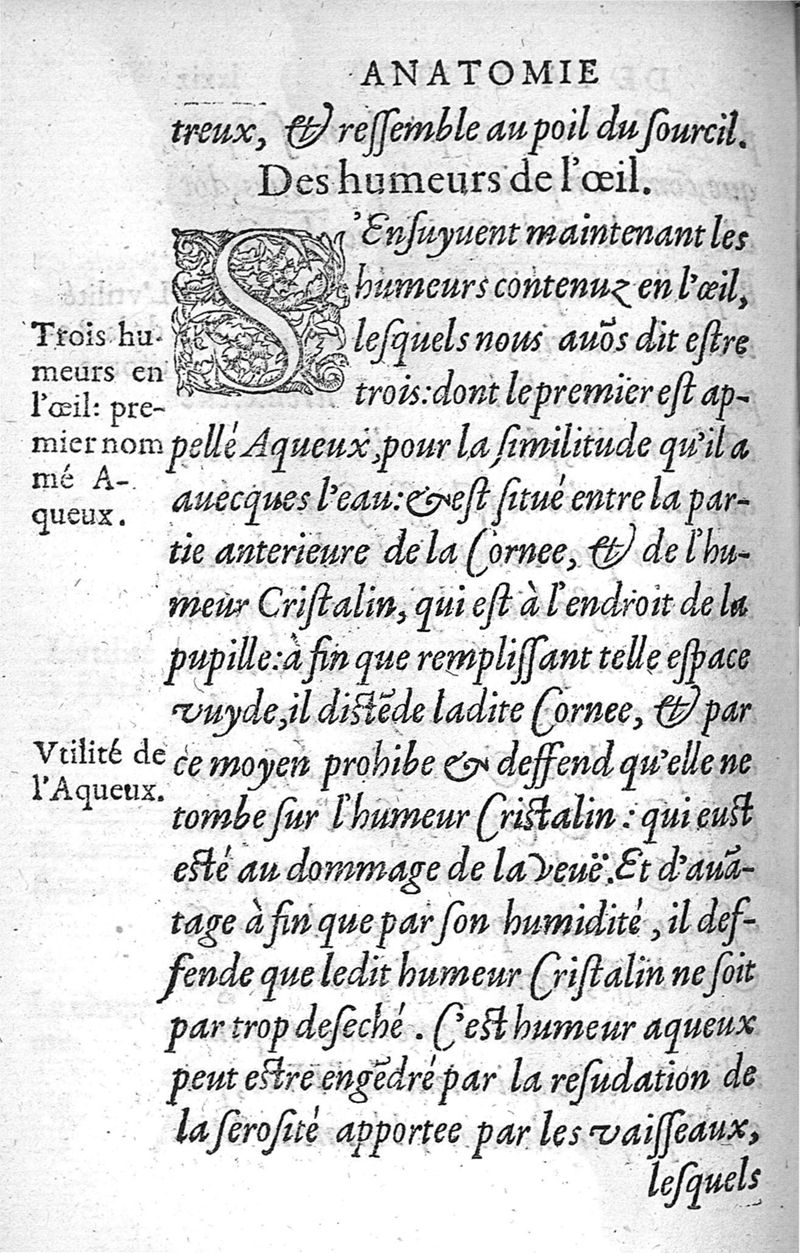 ANATOMIE
treux, & reſſemble au poil du ſourcil.
Des humeurs de l'œil.
S'Enſuyuent maintenant les
humeurs contenuz en l'œil,
leſquels nous auōs dit eſtre
trois: dont le premier eſt ap-
pellé Aqueux, pour la ſimilitude qu'il a
auecques l'eau: & eſt ſitué entre la par-
tie anterieure de la Cornee, & de l'hu-
meur Criſtalin, qui eſt à l'endroit de la
pupille: à fin que rempliſſant telle eſpace
vuyde, il diſtēde ladite Cornee, & par
ce moyen prohibe & deffend qu'elle ne
tombe ſur l'humeur Criſtalin: qui euſt
eſté au dommage de la Veuë. Et d'auā-
tage à fin que par ſon humidité, il def-
fende que ledit humeur Criſtalin ne ſoit
par trop deſeché. C'eſt humeur aqueux
peut eſtre engēdré par la reſudation de
la ſeroſité apportee par les vaiſſeaux,
leſquels
Trois hu-
meurs en
l'œil: pre-
mier nom
mé A-
queux.
Vtilité de
l'Aqueux.